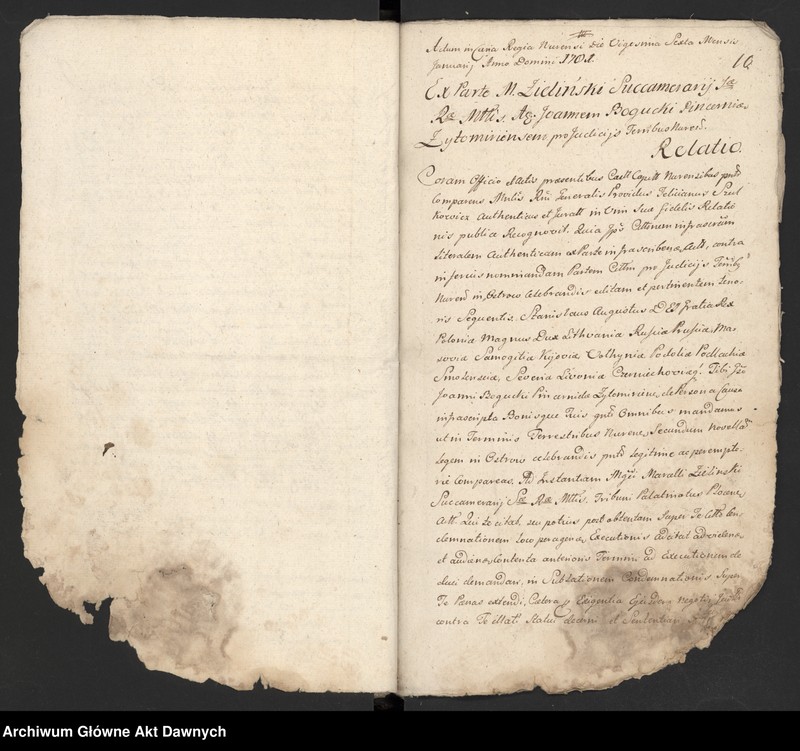 Actum in Curia Regia Nurensi Die Vigesima Sexta Mensis
Januarij Anno Domini 1781.
10
Ex Parte M. Zieliński Succamerarij Scæ
Ræ Mttis. Ag. Joannem Bogucki Pincernia
Zytominiensem pro Judicijs Terribus Nuren̄.
Relatio
Coram Officio et Actis præsentibus Castr Capitt Nurensibus
Comparens Mnlis Rni Generalis Providus Felicianus Szul
kowicz Authenticus et Juratt in Vim Sua fidelis Relatio
nis publica Recognovit. Quia Ipse Cittnem infrascriem
literalem Authenticam ex Parte infrascribenæ Actt, contra
inferius nominandam Partem Cittm pro Judicijs Terribus
Nuren in Ostrow Celebrandis editam et pertinentem teno-
ris Sequentis. Stanislaus Augustus D EI Gratia Rex
Polonia Magnus Dux Lithvania Russia Prussia, Ma-
sovia Samogitia Kijovia Volhynia Podolia Podlachia
Smolenscia, Severia Livonia Czerniechoviaq. Tibi
Joanni Bogucki Pincernida Zytominiene, de Persona Causa
infrascripta Bonisque Tuis Omnibus mandamus
ut in Terminis Terrestribus Nurene, Secundum novellam
legem in Ostrow celebrandis legitime ac perempto-
rie Compareas. Ad Instantiam Marcelli Zieliński
Succamerarij Scæ Ræ Mttis. Tribuni Palatinatus Plocene,
Att. Qui Te citat, seu potius post obtentam Super Te Citto Con-
demnationem loco peragenæ Executionis adcitat advidenæ
et audienæ Contenta anterioris Termini ad Executionem de
duci demandari, in Sublationem Condemnationis Super
Te Pænas extendi, Cætera Exigentia Ejusdem negotij
contra Te Statui decerni et Sententiari
Archiwum Główne Akt Dawnych